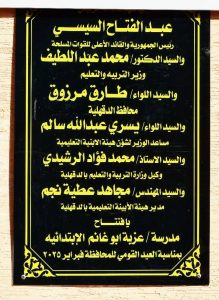 عبد الفتاح السيسي
رئيس الجمهورية والقائد الأعلى للقوات المسلحة
والسيد الدكتور/ محمد عبد اللطيف
وزير التربيه والتعليم
والسيد اللواء/ طارق مرزوق
محافظ الدقهلية
والسيد اللواء/ يسري عبدالله سالم
مساعد الوزير لشؤن هيئة الابنية التعليمية
والسيد الاستاذ/ محمد فؤاد الرشيدي
وكيل وزارة التربيه والتعليم بالدقهلية
والسيد المهندس/ مجاهد عطية نجم
مدير هيئة الأبنية التعليمية بالدقهلية
بإفتتاح
مدرسة / عزبة ابو غانم الإبتدائيه
بمناسبة العيد القومي للمحافظة فبراير ٢٠٢٥